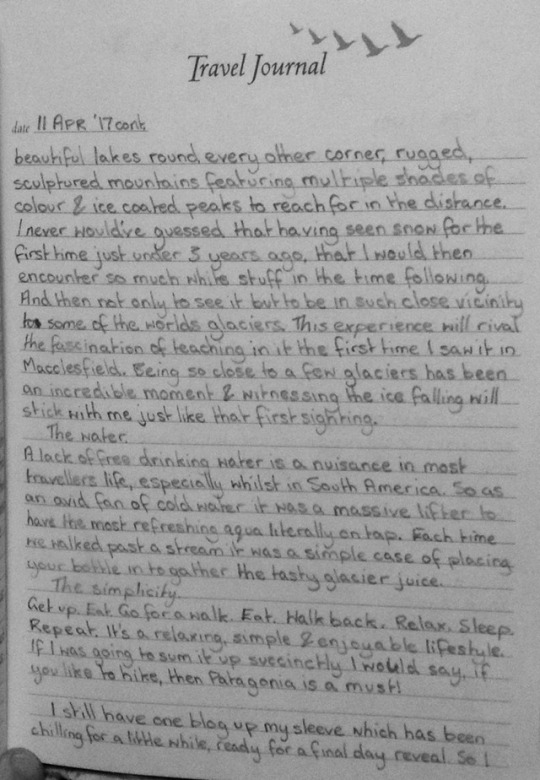 Travel Journal
date 11 APR '17 cont.
beautiful lakes round every other corner, rugged,
sculptured mountains featuring multiple shades of
colour & ice coated peaks to reach for in the distance.
I never would've guessed that having seen snow for the
first time just under 3 years ago, that I would then
encounter so much white stuff in the time following.
And then not only to see it but to be in such close vicinity
to some of the worlds glaciers. This experience will rival
the fascination of teaching in it the first time I saw it in
Macclesfield. Being so close to a few glaciers has been
an incredible moment & witnessing the ice falling will
stick with me just like that first sighting.
The water.
A lack of free drinking water is a nuisance in most
travellers life, especially whilst in South America. So as
an avid fan of cold water it was a massive lifter to
have the most refreshing aqua literally on tap. Each time
we walked past a stream it was a simple case of placing
your bottle in to gather the tasty glacier juice.
The simplicity.
Get up. Eat. Go for a walk. Eat. Walk back. Relax. Sleep.
Repeat. It's a relaxing, simple & enjoyable lifestyle.
If I was going to sum it up succinctly I would say, if
you like to hike, then Patagonia is a must!
I still have one blog up my sleeve which has been
chilling for a little while, ready for a final day reveal. So I